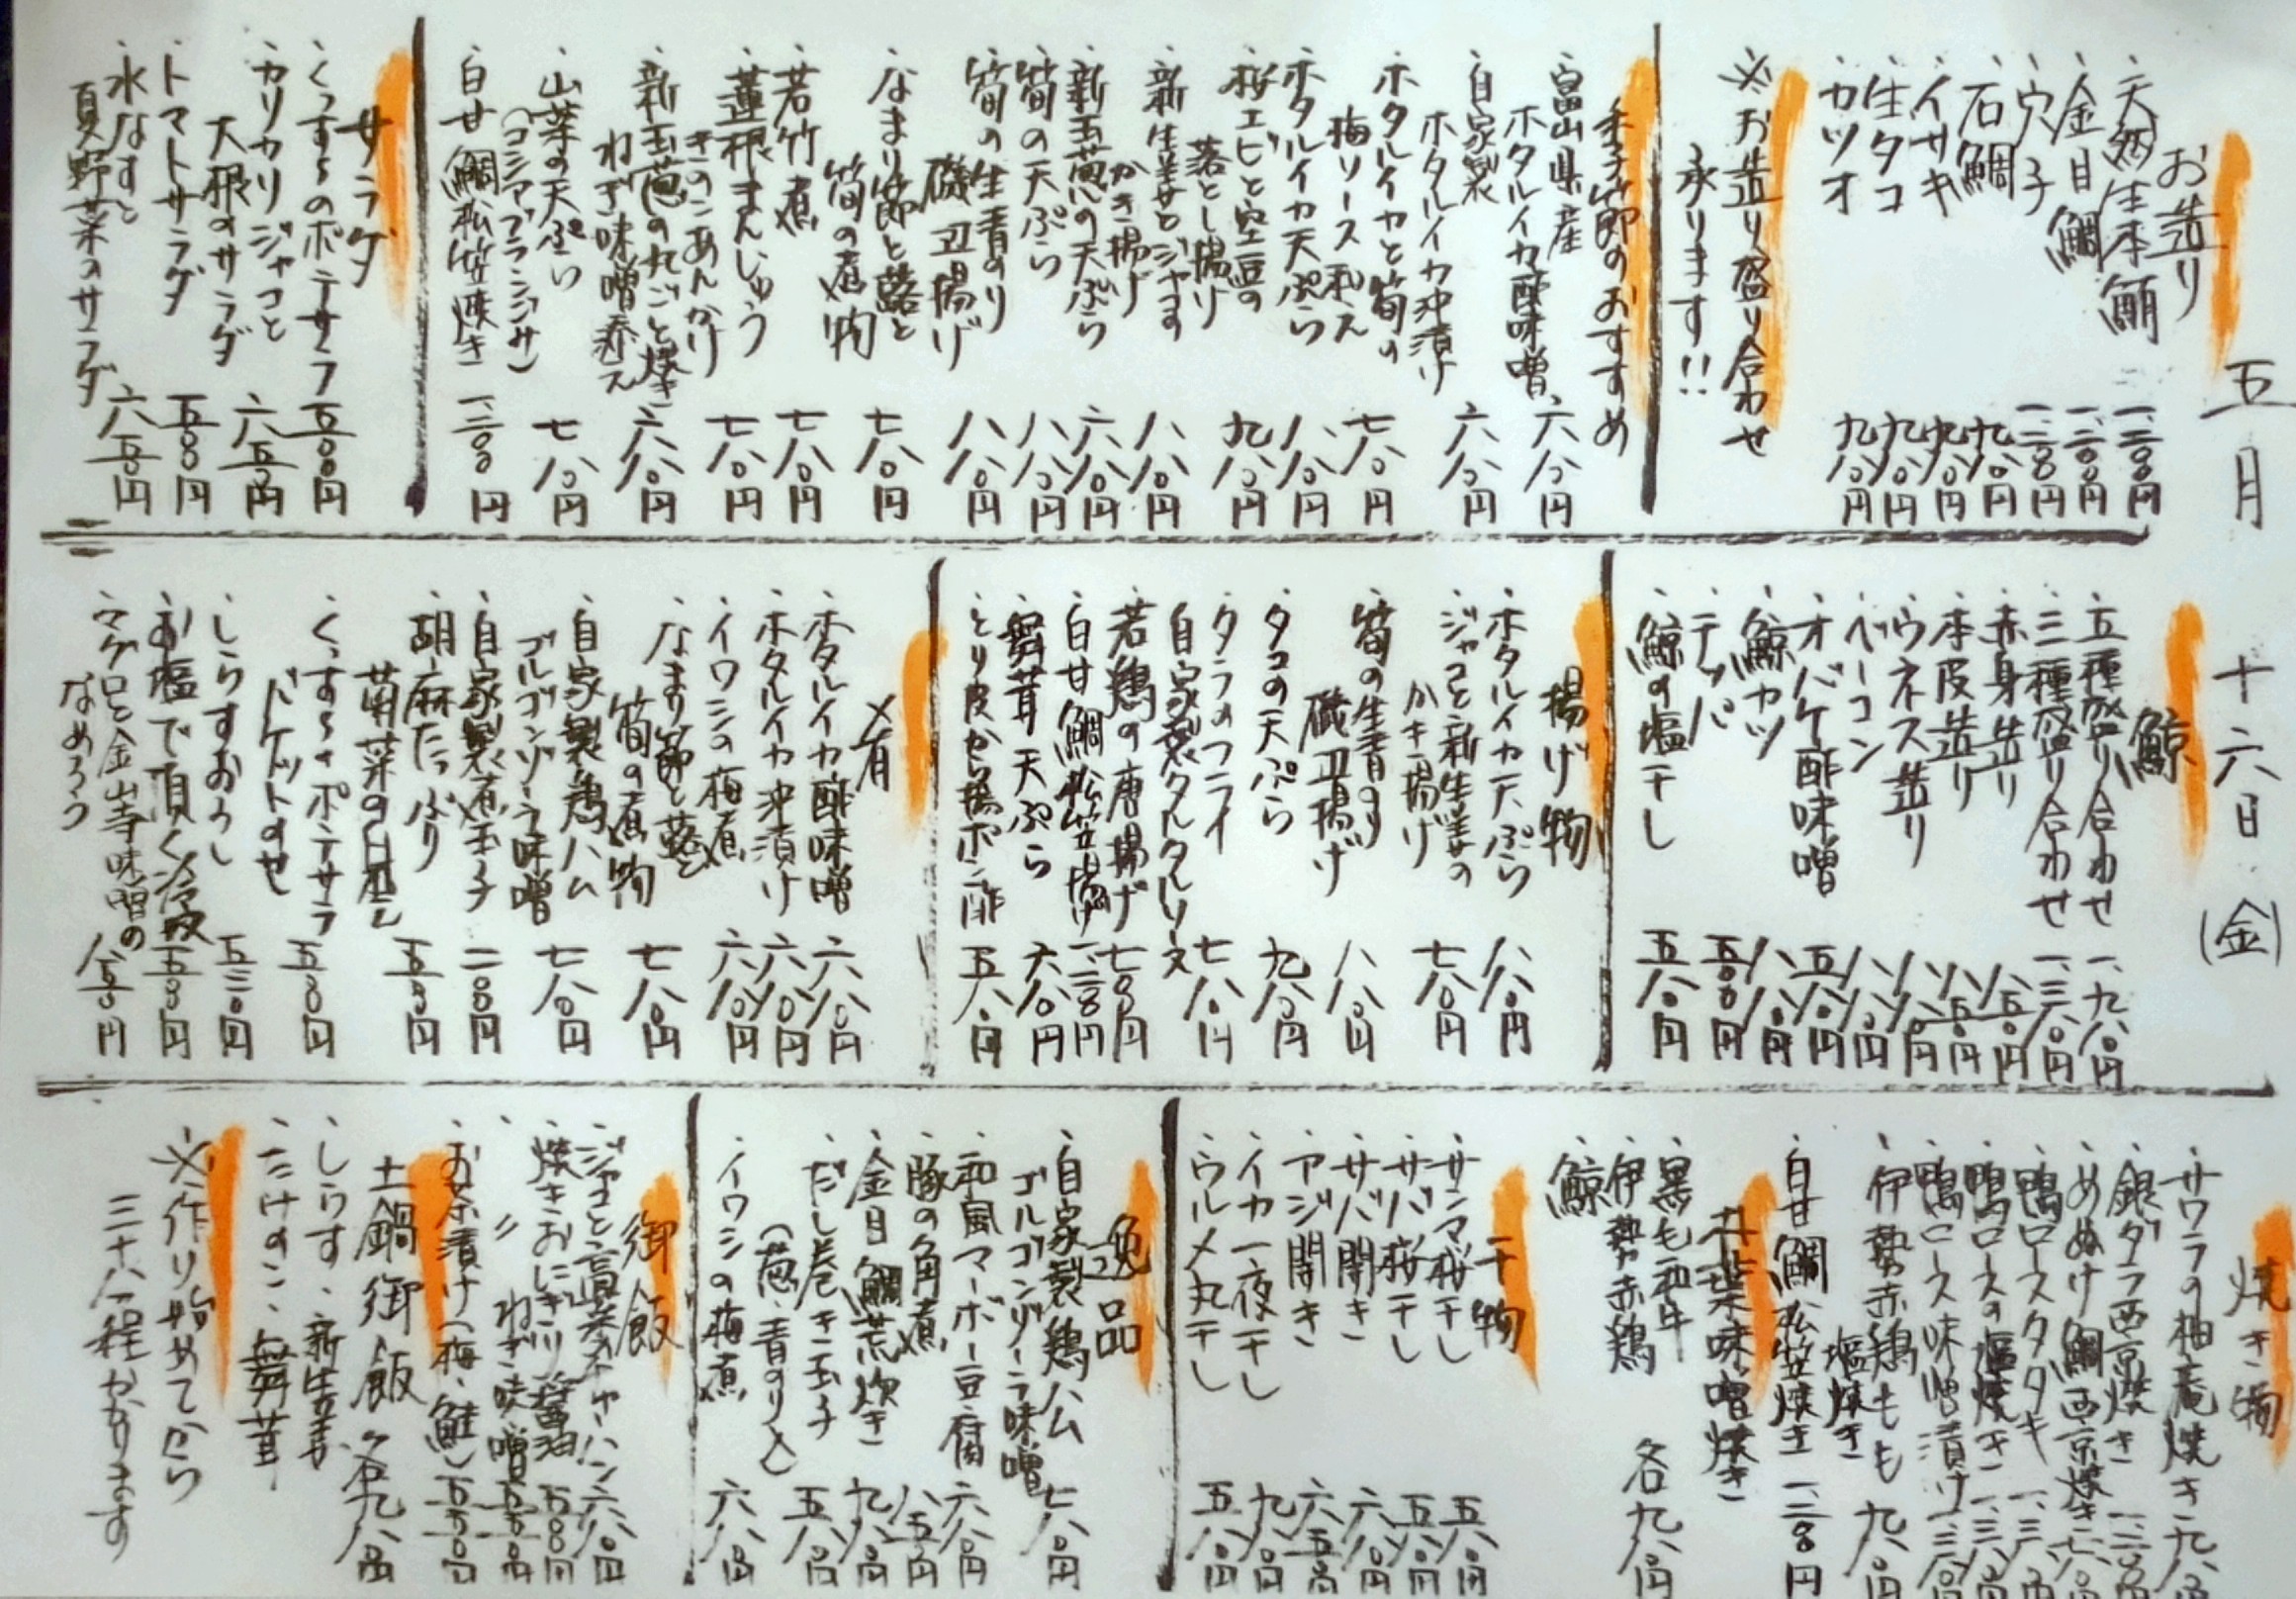 五月 十六日(金)
お造り
・天然生本鮪 一、二〇〇円
・金目鯛 一、二〇〇円
・穴子 一、二〇〇円
・石鯛 九八〇円
・イサキ 九八〇円
・生タコ 九八〇円
・カツオ 九八〇円
※お造り盛り合わせ
承ります!!
季節のおすすめ
・富山県産
ホタルイカ酢味噌 六八〇円
・自家製
ホタルイカ沖漬け 六八〇円
・ホタルイカと筍の
梅ソース和え 七八〇円
・ホタルイカ天ぷら 八八〇円
・桜エビと空豆の
落とし揚げ 九八〇円
・新生姜とジャコの
かき揚げ 八八〇円
・新玉葱の天ぷら 六八〇円
・筍の天ぷら 八八〇円
・筍の生青のり
磯辺揚げ 八八〇円
・なまり節と蕗と
筍の煮物 七八〇円
・若竹煮 七八〇円
・蓮根まんじゅう
きのこあんかけ 七八〇円
・新玉葱の丸ごと焼き
ねぎ味噌添え 六八〇円
・山菜の天ぷら
(コシアブラ・シジミ) 七八〇円
・白甘鯛松笠焼き 一、二〇〇円
サラダ
・くっすものポテサラ 五〇〇円
・カリカリジャコと
大根のサラダ 六五〇円
・トマトサラダ 五〇〇円
・水なすと
夏野菜のサラダ 六五〇円
鯨
・五種盛り合わせ 一、九八〇円
・三種盛り合わせ 一、三八〇円
・赤身造り 八五〇円
・本皮造り 八五〇円
・ウネス造り 八八〇円
・ベーコン 八八〇円
・オバケ酢味噌 五八〇円
・鯨カツ 八八〇円
・テッパ 五〇〇円
・鯨の塩干し 五八〇円
揚げ物
・ホタルイカ天ぷら 八八〇円
・ジャコと新生姜の
かき揚げ 七八〇円
・筍の生青のり
磯辺揚げ 八八〇円
・タコの天ぷら 九八〇円
・タラのフライ
自家製タルタルソース 七八〇円
・若鶏の唐揚げ 七〇〇円
・白甘鯛松笠揚げ 一、二〇〇円
・舞茸天ぷら 六八〇円
・とり皮から揚ポン酢 五八〇円
〆肴
・ホタルイカ酢味噌 六八〇円
・ホタルイカ沖漬け 六八〇円
・イワシの梅煮 六八〇円
・なまり節と蕗と
筍の煮物 七八〇円
・自家製鶏ハム
ゴルゴンゾーラ味噌 七八〇円
・自家製煮玉子 二〇〇円
・胡麻たっぷり
菊菜の白和え 五五〇円
・くっすもポテサラ
バケットのせ 五五〇円
・しらすおろし 五三〇円
・お塩で頂く冷奴 五五〇円
・マグロと金山寺味噌の
なめろう 八五〇円
焼き物
・サワラの柚庵焼き 九八〇円
・銀ダラ西京焼き 一、二〇〇円
・めぬけ鯛西京焼き 七八〇円
・鴨ロースタタキ 一、三八〇円
・鴨ロースの塩焼き 一、三八〇円
・鴨ロース味噌漬け 一、三八〇円
・伊勢赤鶏もも
塩焼き 九八〇円
・白甘鯛松笠焼き 一、二〇〇円
朴葉味噌焼き
・黒毛和牛
・伊勢赤鶏
・鯨 各九八〇円
干物
・サンマ桜干し 五八〇円
・サバ桜干し 五八〇円
・サバ開き 六八〇円
・アジ開き 六五〇円
・イカ一夜干し 九八〇円
・ウルメ丸干し 五八〇円
逸品
・自家製鶏ハム
ゴルゴンゾーラ味噌 七八〇円
・和風マーボー豆腐 六八〇円
・豚の角煮 八五〇円
・金目鯛荒炊き 九八〇円
・だし巻き玉子
(葱・青のり入) 五八〇円
・イワシの梅煮 六八〇円
御飯
・ジャコと高菜チャーハン 六八〇円
・焼きおにぎり醤油 五〇〇円
・〃 ねぎ味噌 五五〇円
・お茶漬け(梅・鮭) 五五〇円
土鍋御飯 各九八〇円
・しらす・新生姜
・たけのこ・舞茸
※作り始めてから
三十八分程かかります